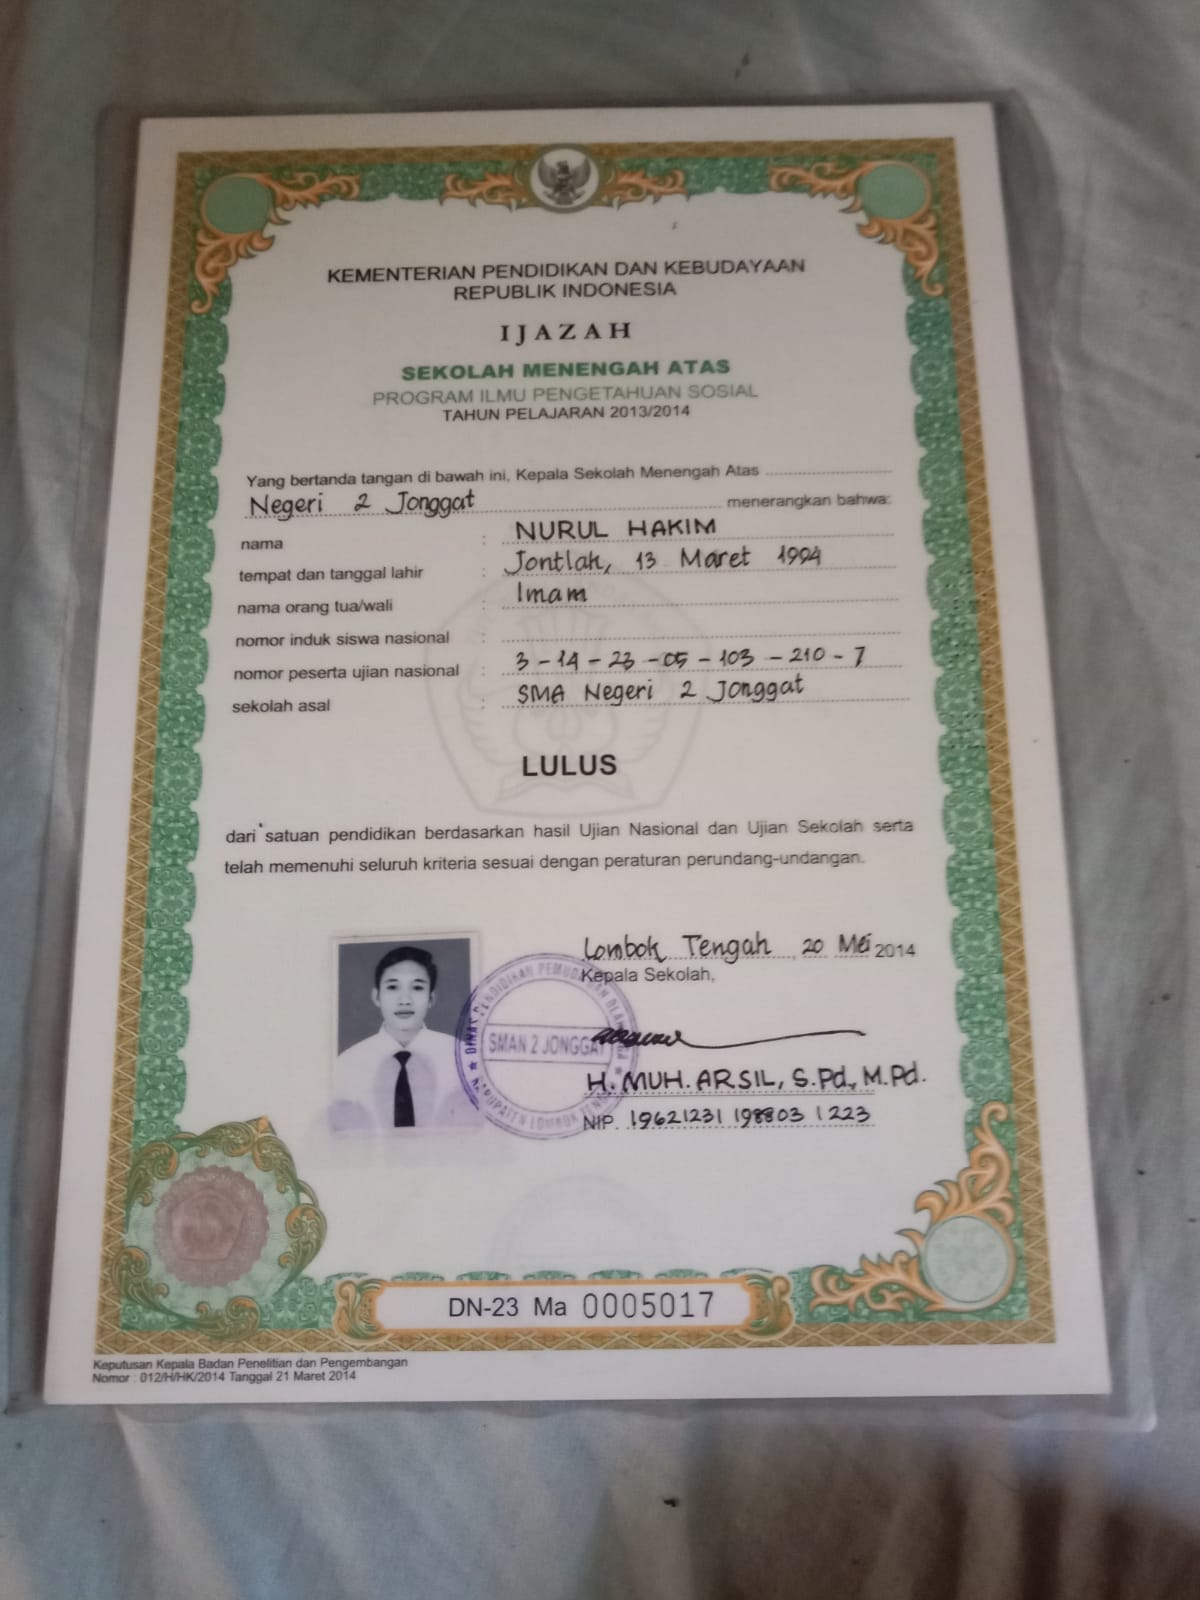 KEMENTERIAN PENDIDIKAN DAN KEBUDAYAAN
REPUBLIK INDONESIA
IJAZAH
SEKOLAH MENENGAH ATAS
PROGRAM ILMU PENGETAHUAN SOSIAL
TAHUN PELAJARAN 2013/2014
Yang bertanda tangan di bawah ini, Kepala Sekolah Menengah Atas
Negeri 2 Jonggat menerangkan bahwa:
nama : NURUL HAKIM
tempat dan tanggal lahir : Jontlak, 13 Maret 1994
nama orang tua/wali : Imam
nomor induk siswa nasional :
nomor peserta ujian nasional : 3-14-23-05-103-210-7
sekolah asal : SMA Negeri 2 Jonggat
LULUS
dari satuan pendidikan berdasarkan hasil Ujian Nasional dan Ujian Sekolah serta
telah memenuhi seluruh kriteria sesuai dengan peraturan perundang-undangan.
Lombok Tengah, 20 Mei 2014
Kepala Sekolah,
DINAS PENDIDIKAN PEMUDA DAN OLAHRAGA
SMAN 2 JONGGAT
KABUPATEN LOMBOK TENGAH
H. MUH. ARSIL, S.Pd, M.Pd.
NIP. 19621231 198803 1 223
DN-23 Ma 0005017
Keputusan Kepala Badan Penelitian dan Pengembangan
Nomor : 012/H/HK/2014 Tanggal 21 Maret 2014